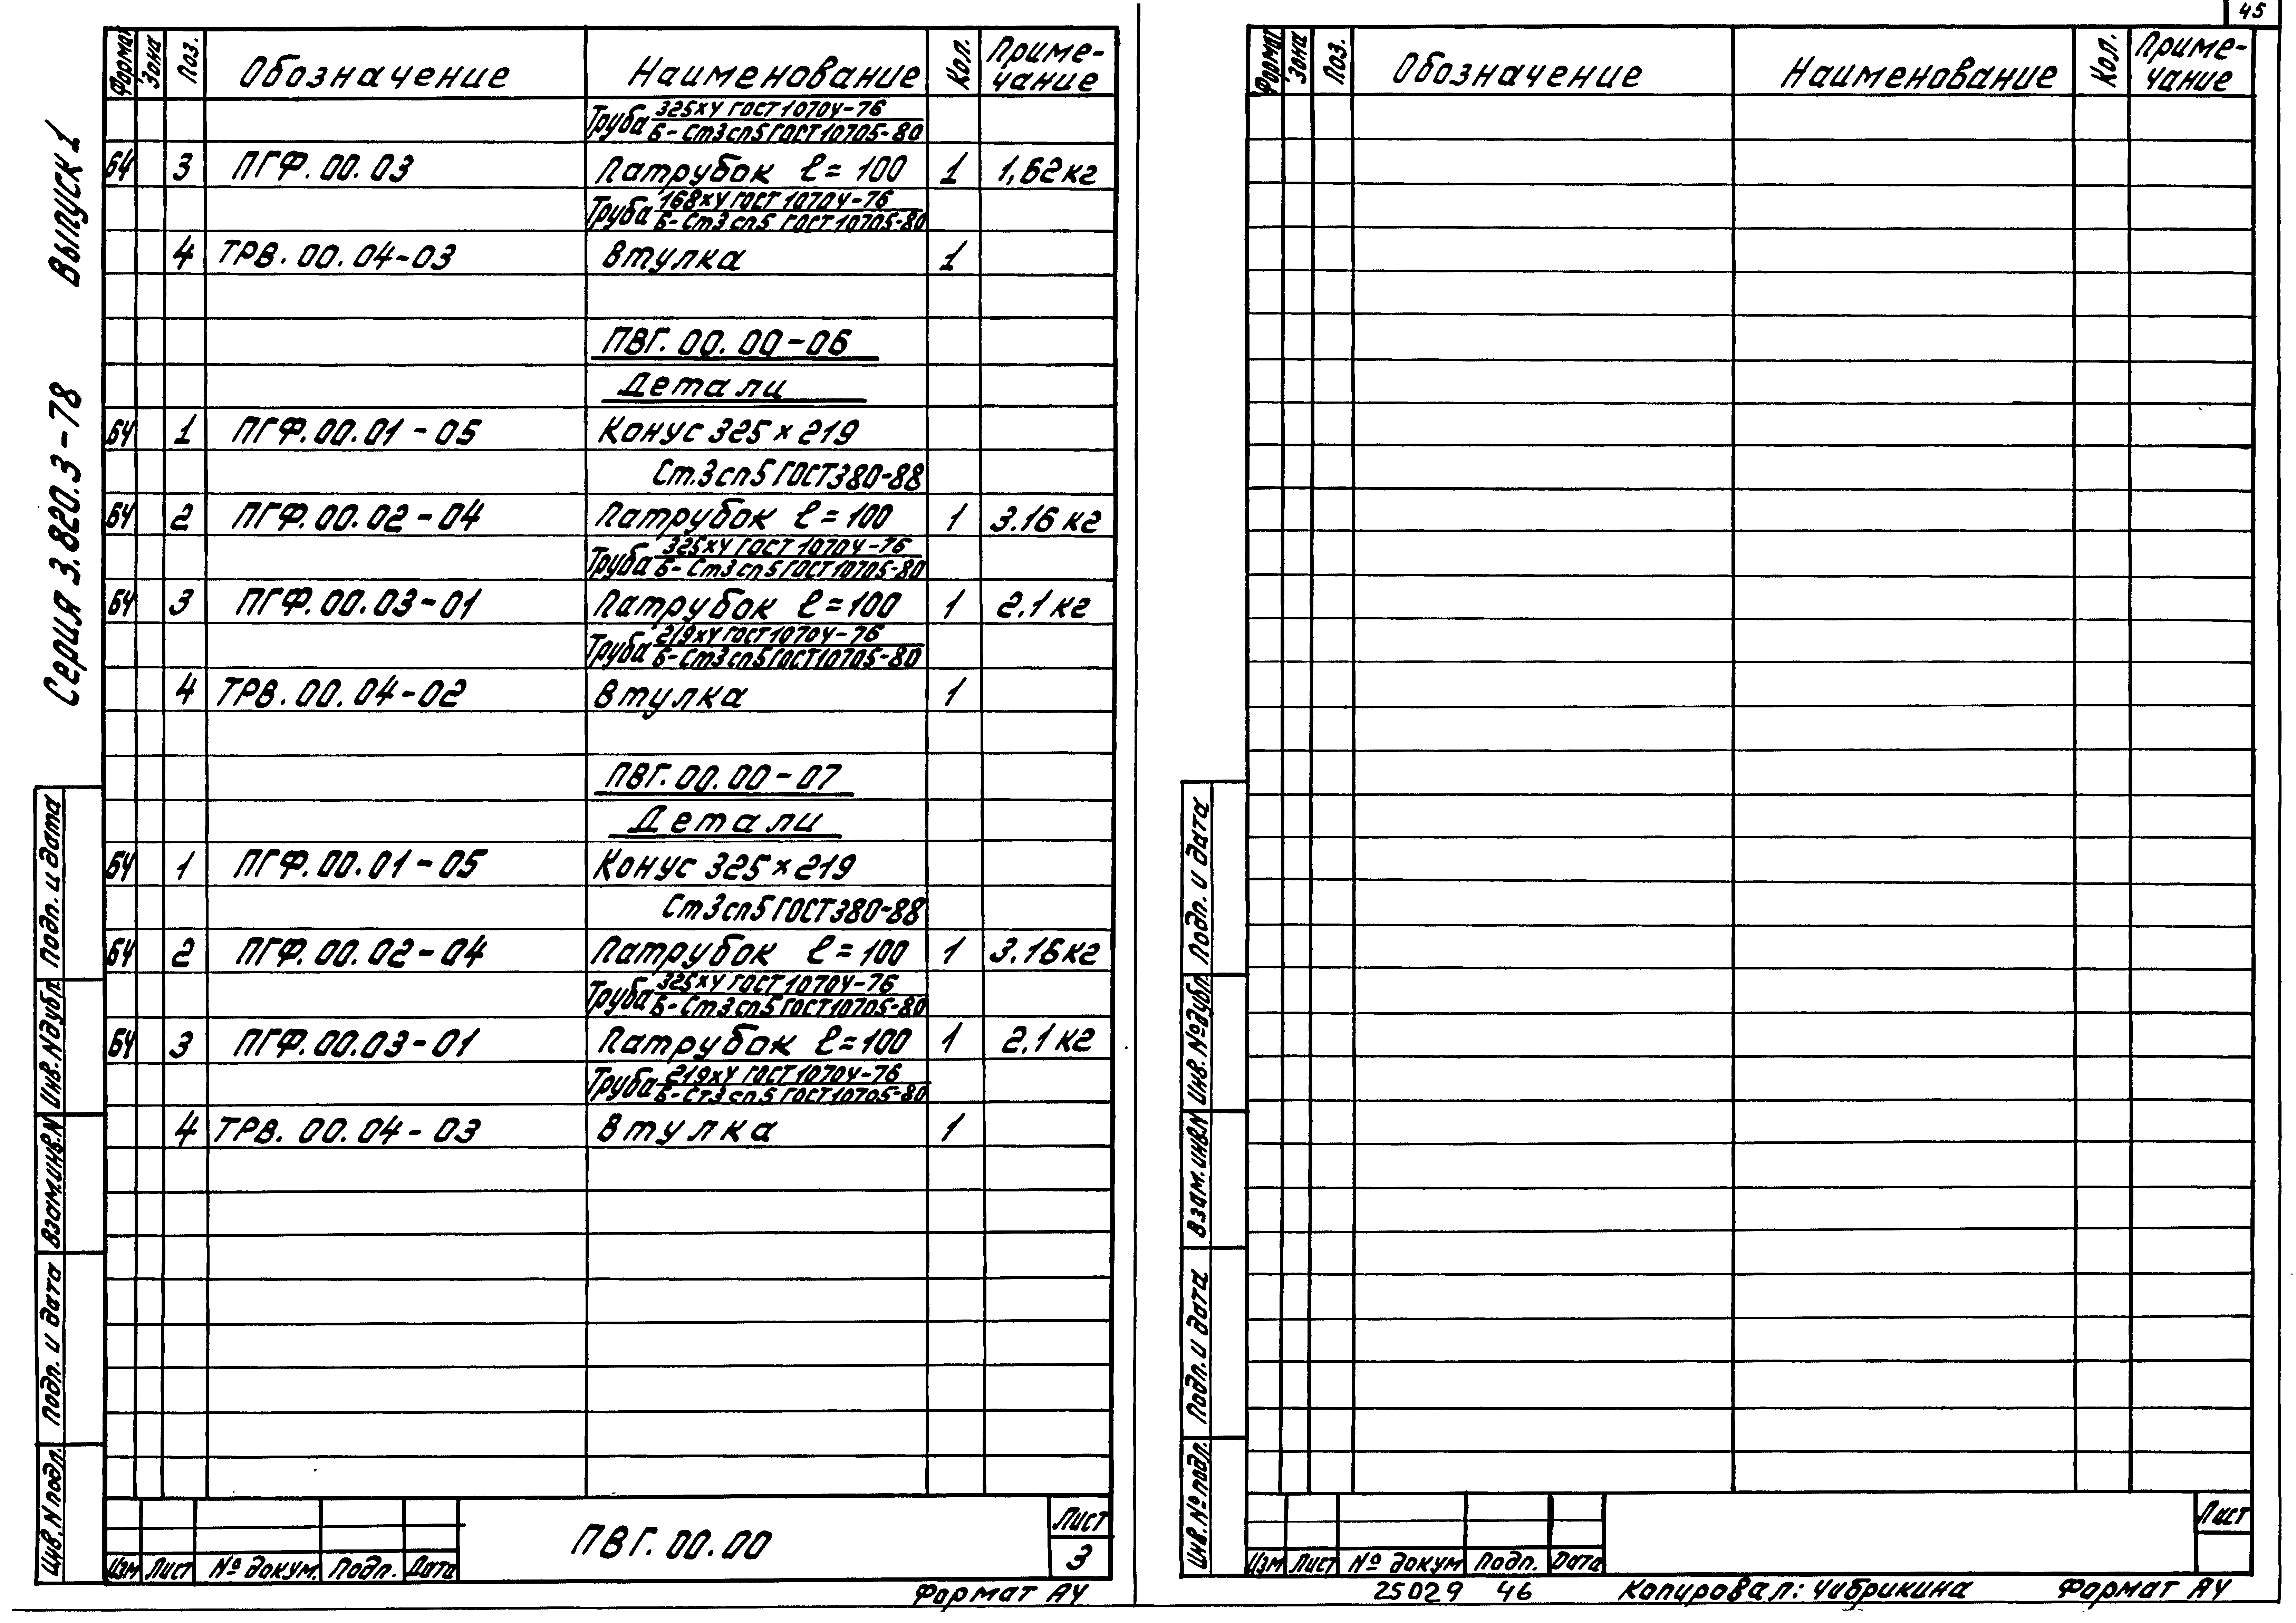 45
Серия 3.820.3-78 Выпуск 1
Формат Зона Поз. Обозначение Наименование Кол. Приме-
чание
Труба 325х4 ГОСТ 10704-76
Б-Ст3сп5 ГОСТ 10705-80
Б4 3 ПГФ.00.03 Патрубок ℓ=100 1 1,62кг
Труба 168х4 ГОСТ 10704-76
Б-Ст3сп5 ГОСТ 10705-80
4 ТРВ.00.04-03 Втулка 1
ПВГ.00.00-06
Детали
БЧ 1 ПГФ.00.01-05 Конус 325×219
Ст.3сп5 ГОСТ380-88
БЧ 2 ПГФ.00.02-04 Патрубок ℓ=100 1 3.16 кг
Труба 325х4 ГОСТ 10704-76
Б-Ст3сп5 ГОСТ10705-80
БЧ 3 ПГФ.00.03-01 Патрубок ℓ=100 1 2.1 кг
Труба 219х4 ГОСТ 10704-76
Б-Ст3сп5 ГОСТ10705-80
4 ТРВ.00.04-02 Втулка 1
ПВГ.00.00-07
Детали
БЧ 1 ПГФ.00.01-05 Конус 325×219
Ст3сп5 ГОСТ380-88
БЧ 2 ПГФ.00.02-04 Патрубок ℓ=100 1 3.16кг
Труба 325х4 ГОСТ 10704-76
Б-Ст3сп5 ГОСТ10705-80
БЧ 3 ПГФ.00.03-01 Патрубок ℓ=100 1 2.1 кг
Труба 219х4 ГОСТ 10704-76
Б-Ст3сп5 ГОСТ10705-80
4 ТРВ.00.04-03 Втулка 1
Инв.N подл. Подп. и дата Взам.инв.N Инв. Nдубл. Подп. и дата
Изм Лист № докум. Подп. Дата
ПВГ.00.00
Лист
3
Формат А4
Формат Зона Поз. Обозначение Наименование Кол. Приме-
чание
Инв.№ подл. Подп. и дата Взам.инв.N Инв. №дубл. Подп. и дата
Изм Лист № докум Подп. Дата
Лист
25029 46 Копировал: Чибрикина Формат А4